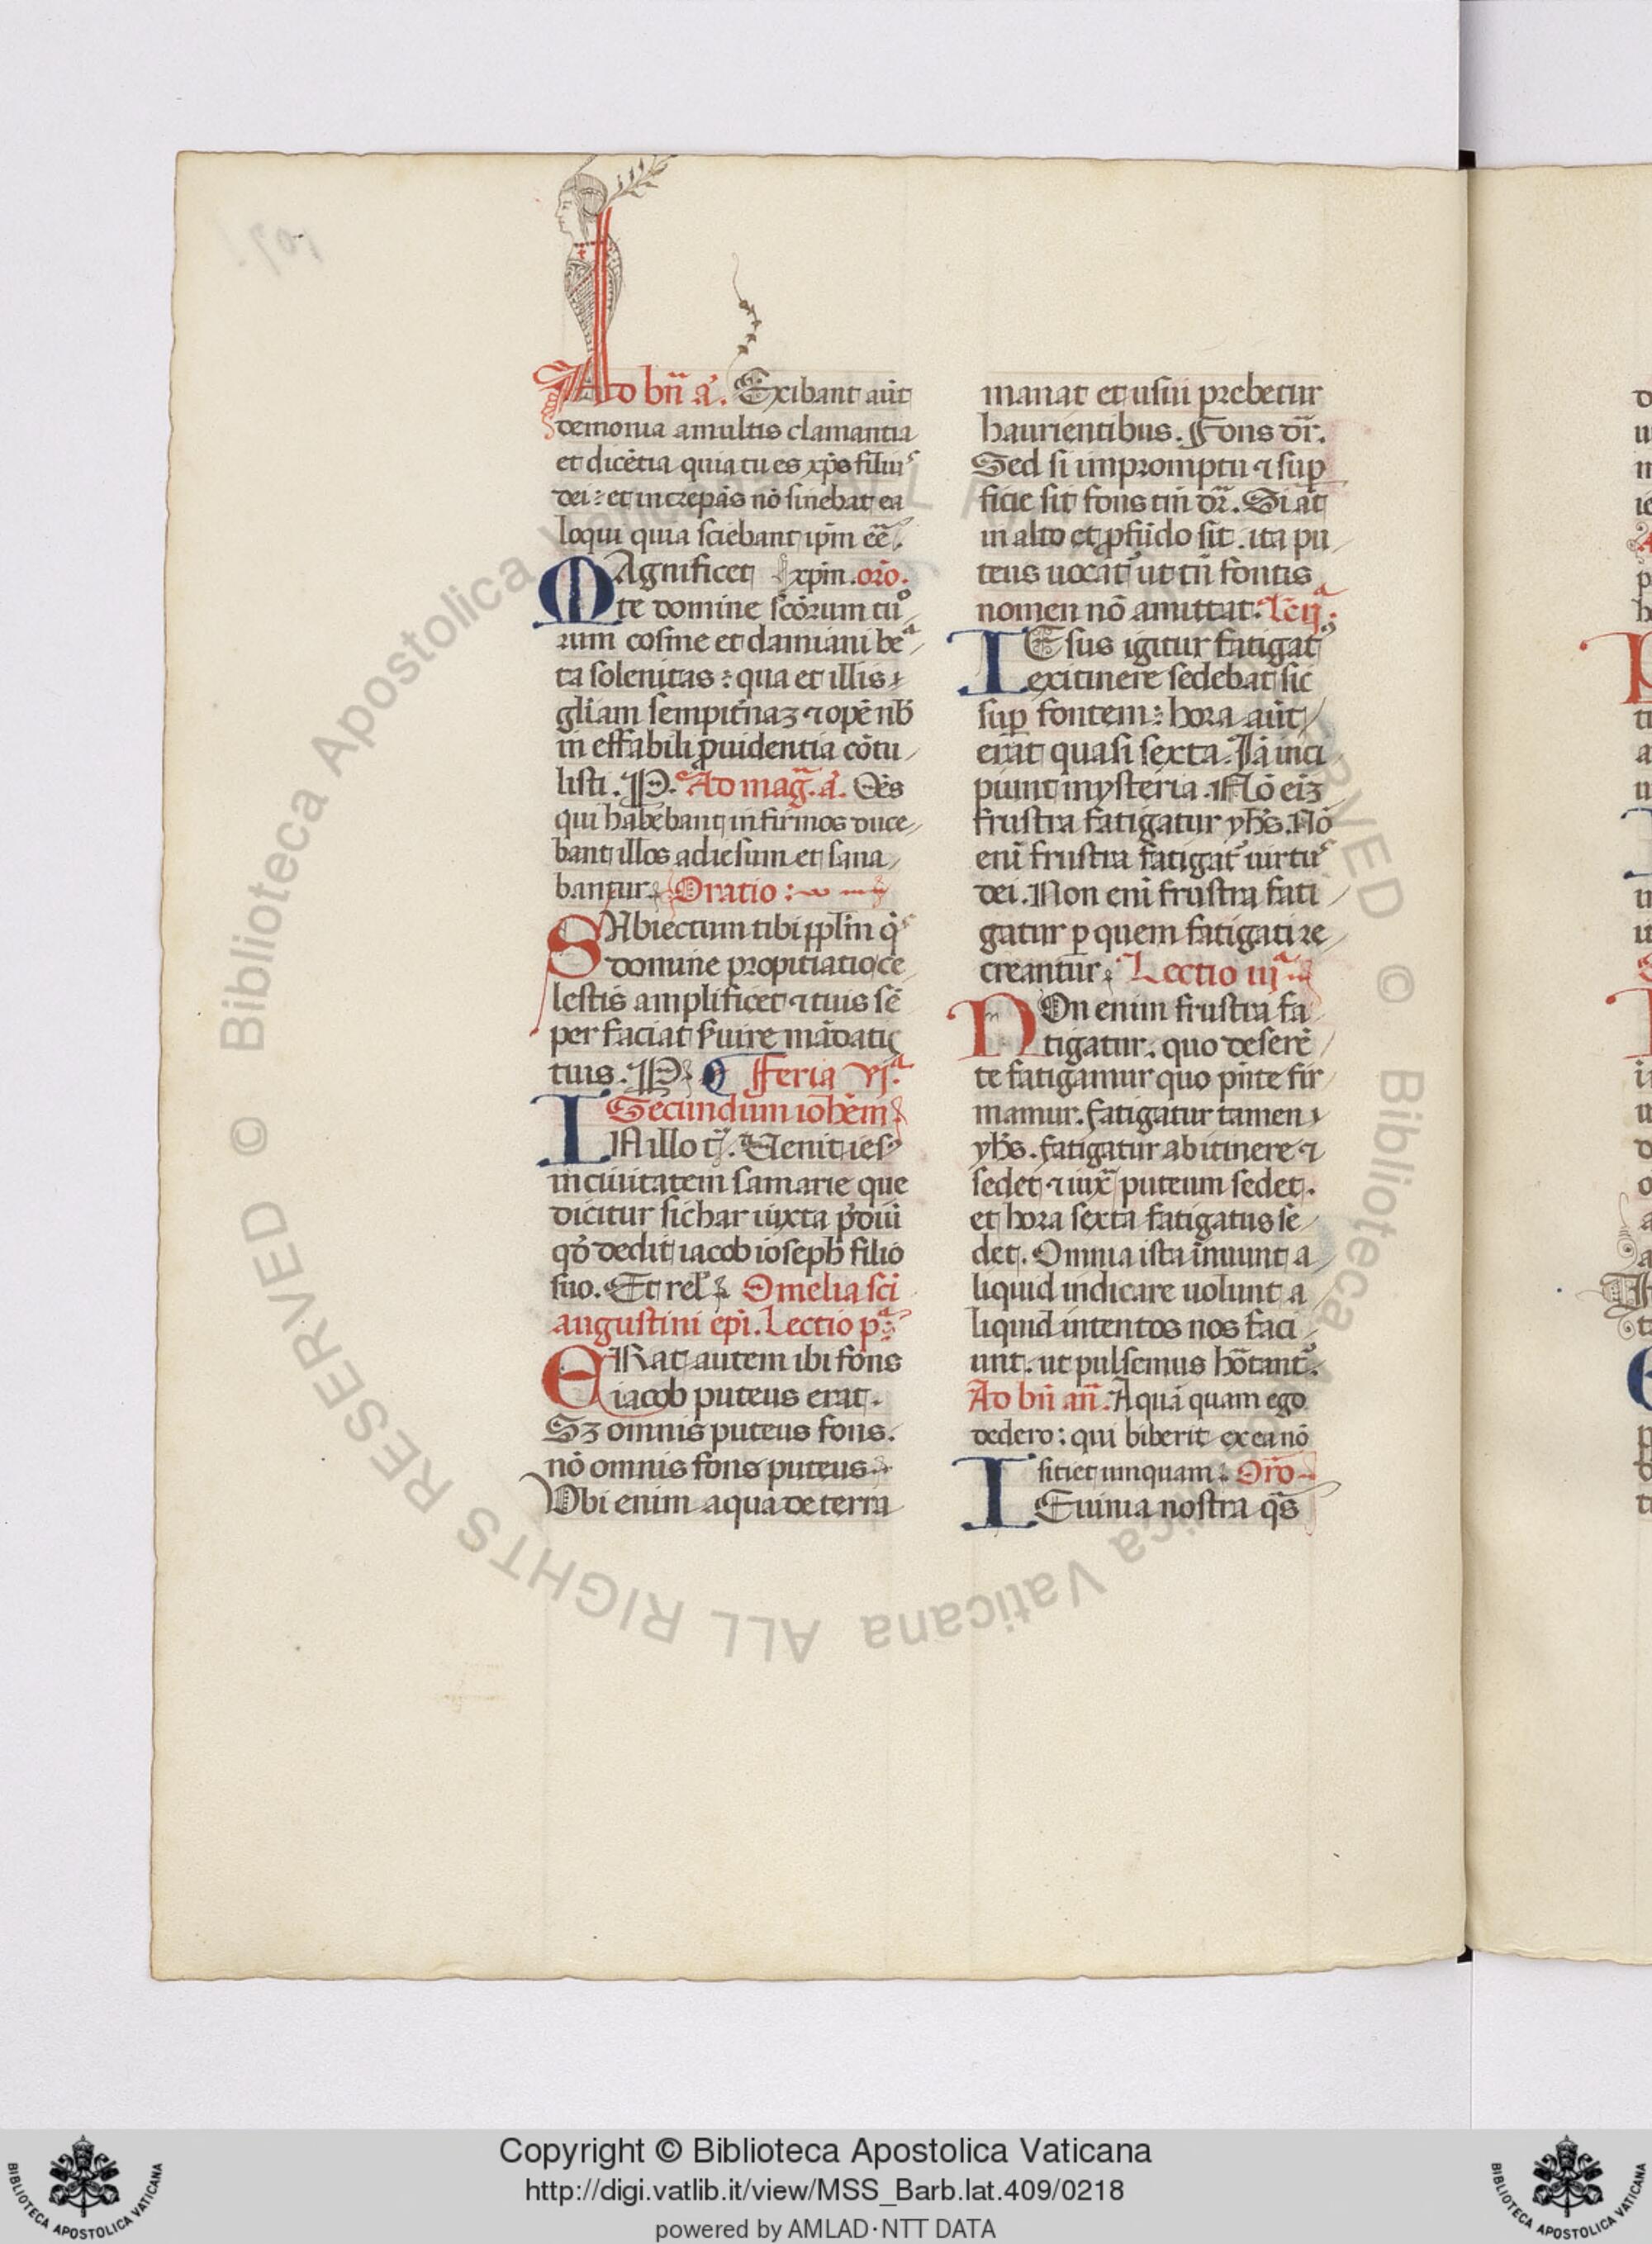 Ad bn̄ a᷑. Exibant aūt
demonia a multis clamantia
et dicētia quia tu es xp̄s filius
dei: et increpās nō sinebat ea
loqui quia sciebant ip̄m eē.
MAgnificet xp̄m. orō.
te domine scōrum tuo
rum cosme et damiani bea
ta solenitas: qua et illis
gl̄iam sempit̄naꝫ ⁊ opē nb̄
in effabili ꝓuidentia cōtu
listi. P. Ad maḡ. a᷑. Oēs
qui habebant infirmos duce
bant illos ad iesum et sana
bantur. Oratio:
SVbiectum tibi pplm̄ qs
domine propitiatio ce
lestis amplificet ⁊ tuis sē
per faciat s̄uire mādatis
tuis. P. Feria vjᵃ.
Secundum ioh̄em
IN illo t̄. Venit iesꝰ
in ciuitatem samarie que
dicitur sichar iuxta p̄diū
qd̄ dedit iacob ioseph filio
suo. Et rel. Omelia sci
augustini ep̄i. Lectio pᵃ
ERat autem ibi fons
iacob puteus erat.
Sꝫ omnis puteus fons.
nō omnis fons puteus.
Vbi enim aqua de terra
manat et usui prebetur
haurientibus. Fons dr̄.
Sed si impromptu ⁊ suꝑ
ficie sit fons tm̄ dr̄. Si aūt
in alto et ꝓfūdo sit. ita pu
teus uocat᷑ ut tn̄ fontis
nomen nō amittat. Lc̄ ijᵃ.
IEsus igitur fatigatꝰ
ex itinere sedebat sic
suꝑ fontem: hora aūt
erat quasi sexta. Iā inci
piunt mysteria. Nō eiꝫ
frustra fatigatur yh̄s. Nō
enī frustra fatigat᷑ uirtus
dei. Non enī frustra fati
gatur ꝑ quem fatigati re
creantur. Lectio iijᵃ
NOn enim frustra fa
tigatur. quo deserē
te fatigamur quo pn̄te fir
mamur. fatigatur tamen
yh̄s. fatigatur ab itinere ⁊
sedet ⁊ iuxᵃ puteum sedet.
et hora sexta fatigatus se
det. Omnia ista īnuunt a
liquid indicare uolunt a
liquid intentos nos faci
unt. ut pulsemus hōtant᷑.
Ad bn̄ an̄. Aquā quam ego
dedero: qui biberit ex ea nō
sitiet unquam. Orō
IEiunia nostra qs̄
© Biblioteca Apostolica Vaticana ALL RIGHTS RESERVED
Copyright © Biblioteca Apostolica Vaticana
http://digi.vatlib.it/view/MSS_Barb.lat.409/0218
powered by AMLAD·NTT DATA
BIBLIOTECA APOSTOLICA VATICANA
BIBLIOTECA APOSTOLICA VATICANA